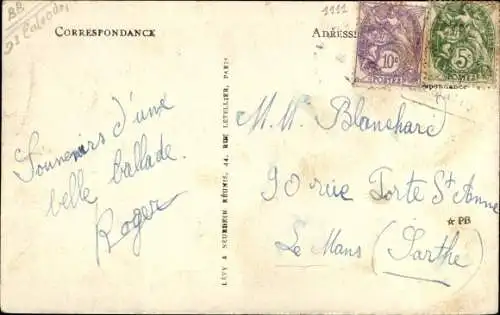 BB
Calvados
1111
CORRESPONDANCE
ADRESSE
10c
5c
POSTES
POSTES
spondance
Souvenirs d'une
belle ballade.
Roger
LÉVY & NEURDEIN RÉUNIS, 44, RUE LETELLIER, PARIS
M. M. Blanchard
90 rue Porte St Anne
☆ PB
Le Mans (Sarthe)